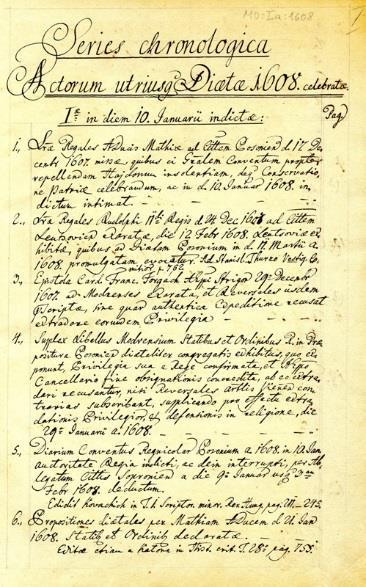 MD:I:a:1608
Series chronologica
Actorum utriusq Diætæ 1608. celebratæ
I.æ in diem 10. Januarii indictæ: Pag
1., Lræ Regales Ducis Mathiæ ad Cttem Posonien d 17. De
cembr 1607. missæ, quibus ei Gralem Conventum propter
repellendam Hajdonum insolentiam, deq Conservatio
ne Patriæ celebrandum, ac in d. 10. Januar 1608. in
dictum intimat.
2., Lræ Regales Rudolphi Regis d 24 Dec 1607 ad Cttem
exaratæ, die 12 Febr 1608. ex
hibitæ, quibus ad Diætam Posonium in d. 11. Martii a.
1608. promulgatam,
3., Epistola Card. Franc. Forgach Aëppi Strigon 29a Decembr
1607. ad Modrenses exarata, et Reversales iisdem
scriptæ, sine quar authentica Expeditione recusat
extradare eorundem Privilegia
4., Suplex Libellus Modrensium Statibus et Ordinibus R. in Præ
positura Posonien congregatis exhibitus, quo ex
ponunt, Privilegia sua e Rege confirmata, et Aëppo
Cancellario fine consignationis concredita, ab eo extra
dari recusantur, nisi Reversales con
trarias subscribant, supplicando pro effectu extra
dationis Privilegior, & defensionis in religione, die
29a Januarii a. 1608.
5., Diarium Conventus Regnicolar Posonium a. 1608. in 10. Jan
auctoritate Regia indicti, ac dein interrupti, per Ab
legatum Cittis Sopronien a die 9a Januar usq
Febr 1608. deductum.
Edidit Kovachich in T. I. Scriptor. minor. Rer. Hung. pag. 211-245.
6., Propositiones diætales per Mathiam Ducem d 21. Jan
1608. Statib et Ordinib declaratæ.
Editæ etiam a Katona in Hist. crit. T. 28. pag. 758.